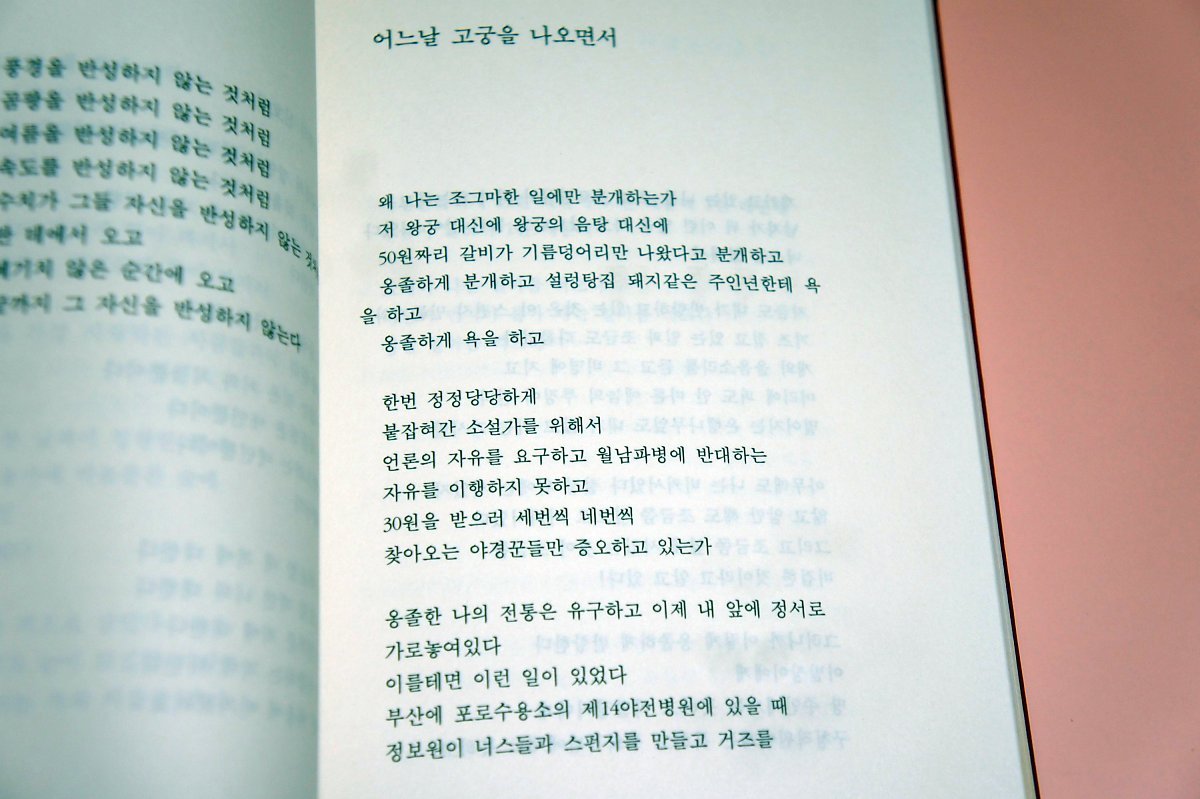 풍경을 반성하지 않는 것처럼
곰팡을 반성하지 않는 것처럼
여름을 반성하지 않는 것처럼
속도를 반성하지 않는 것처럼
수치가 그들 자신을 반성하지 않는
데에서 오고
않은 순간에 오고
그 자신을 반성하지 않는다
어느날 고궁을 나오면서
왜 나는 조그마한 일에만 분개하는가
저 왕궁 대신에 왕궁의 음탕 대신에
50원짜리 갈비가 기름덩어리만 나왔다고 분개하고
옹졸하게 분개하고 설렁탕집 돼지같은 주인년한테 욕
을 하고
옹졸하게 욕을 하고
한번 정정당당하게
붙잡혀간 소설가를 위해서
언론의 자유를 요구하고 월남파병에 반대하는
자유를 이행하지 못하고
30원을 받으러 세번씩 네번씩
찾아오는 야경꾼들만 증오하고 있는가
옹졸한 나의 전통은 유구하고 이제 내 앞에 정서로
가로놓여있다
이를테면 이런 일이 있었다
부산에 포로수용소의 제14야전병원에 있을 때
정보원이 너스들과 스펀지를 만들고 거즈를